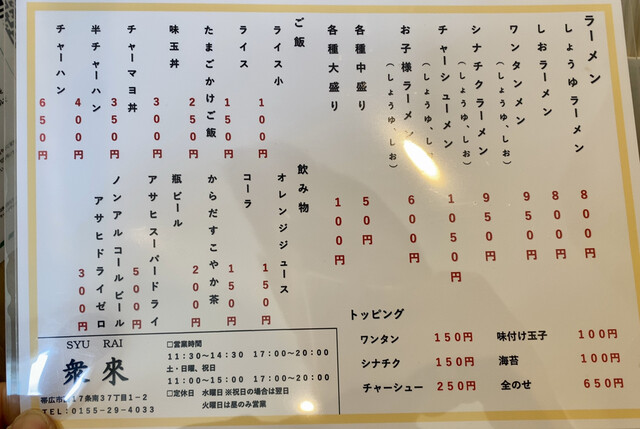 ラーメン
しょうゆラーメン 800円
しおラーメン 800円
ワンタンメン 950円
（しょうゆ、しお）
シナチクラーメン 950円
（しょうゆ、しお）
チャーシューメン 1050円
（しょうゆ、しお）
お子様ラーメン 600円
（しょうゆ、しお）
各種中盛り 50円
各種大盛り 100円
ご飯
ライス小 100円
ライス 150円
たまごかけご飯 250円
味玉丼 300円
チャーマヨ丼 350円
半チャーハン 400円
チャーハン 650円
飲み物
オレンジジュース 150円
コーラ 150円
からだすこやか茶 200円
瓶ビール
アサヒスーパードライ 500円
ノンアルコールビール
アサヒドライゼロ 300円
トッピング
ワンタン 150円 味付け玉子 100円
シナチク 150円 海苔 100円
チャーシュー 250円 全のせ 650円
SYU RAI
衆来
帯広市17条南37丁目1-2
TEL:0155-29-4033
□営業時間
11:30~14:30 17:00~20:00
土・日曜、祝日
11:00~15:00 17:00~20:00
□定休日 水曜日 ※祝日の場合は翌日
火曜日は昼のみ営業